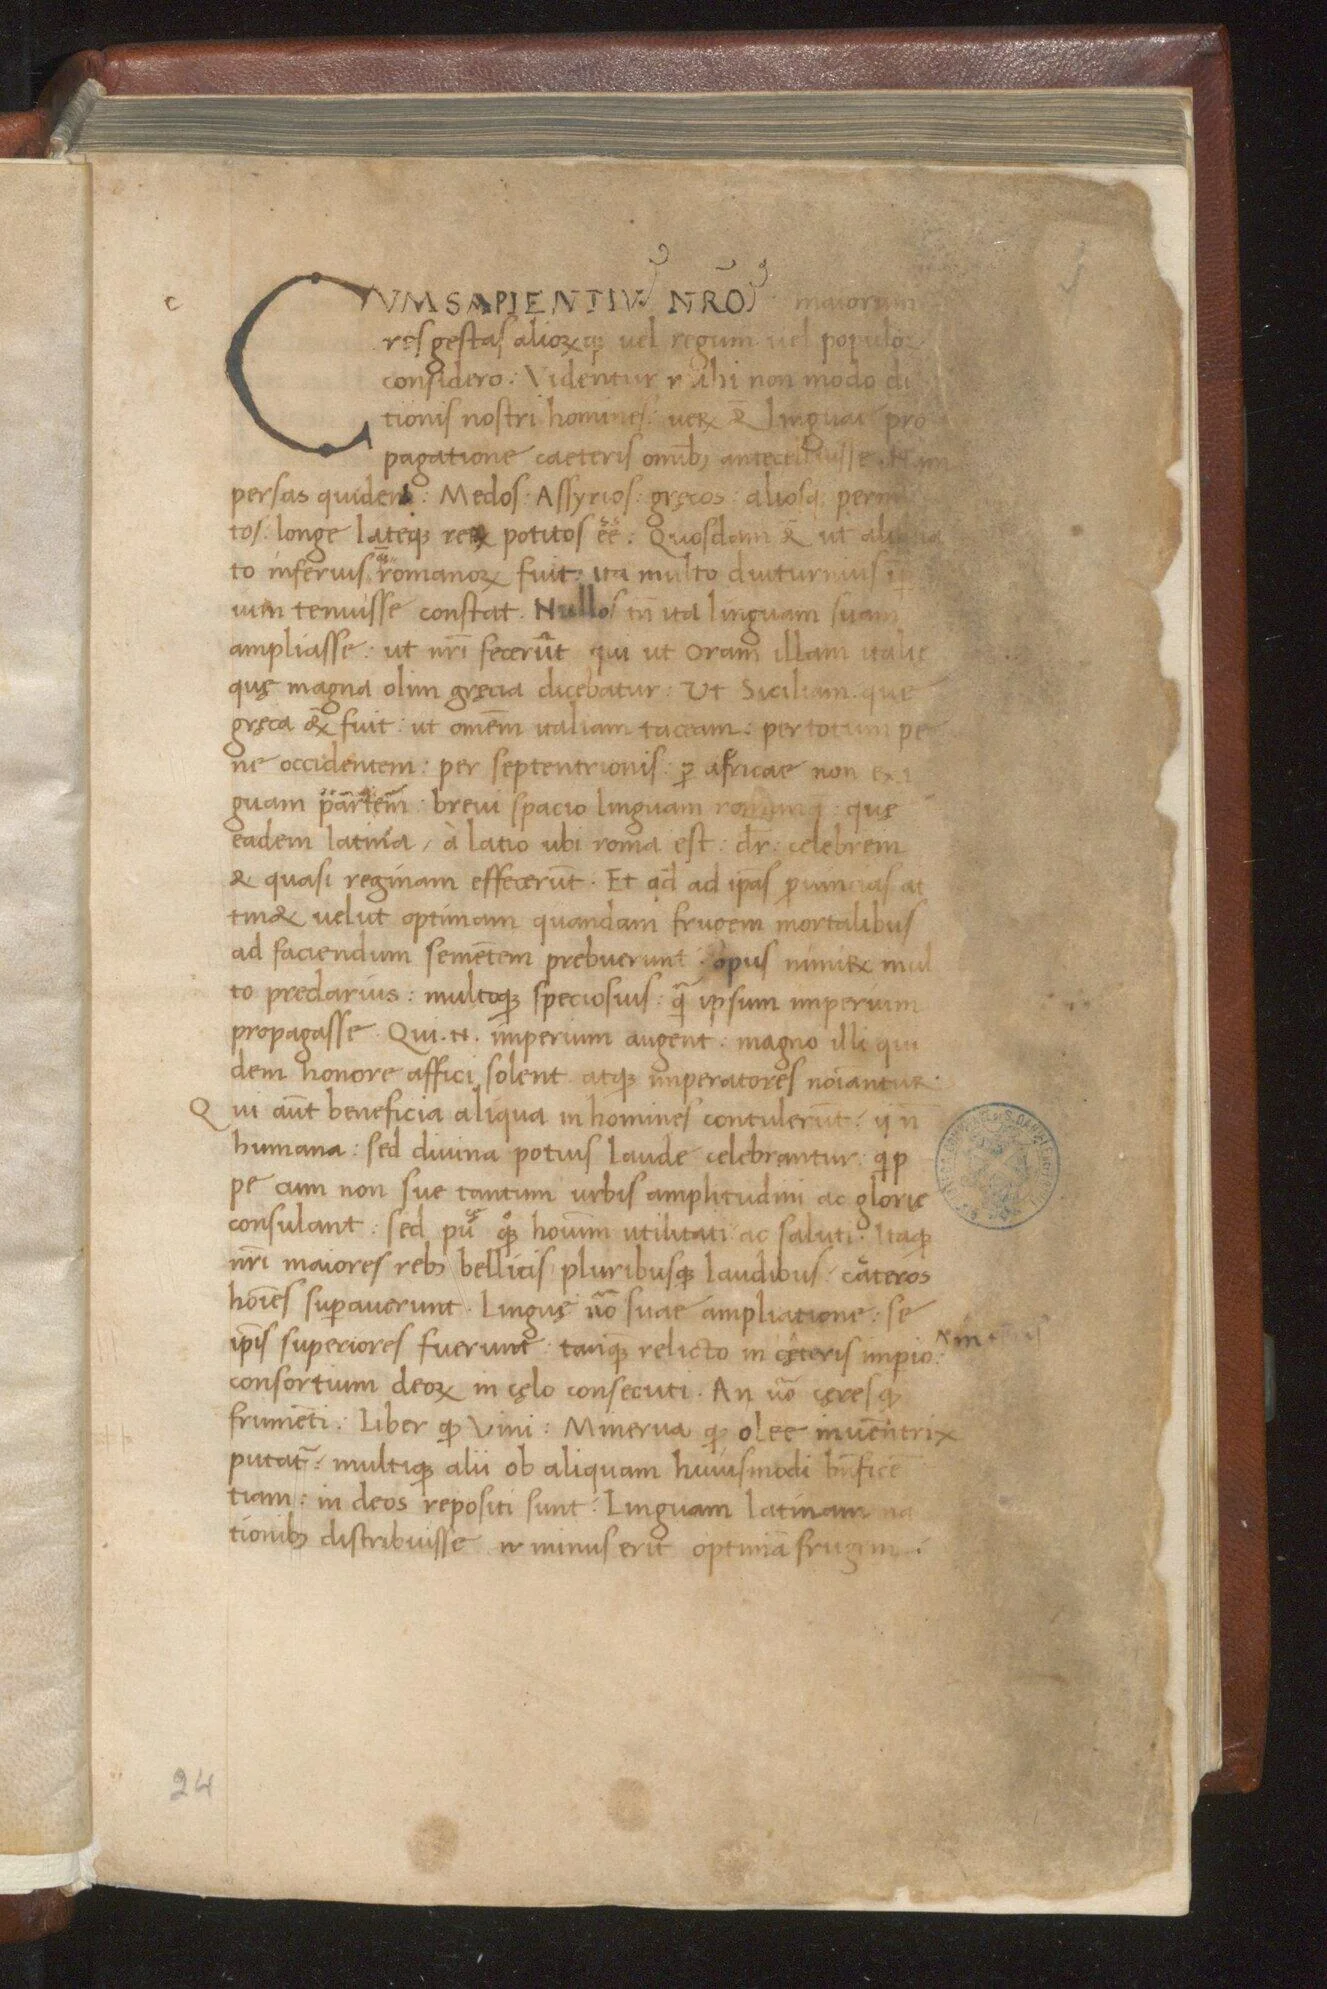 c
CVM SAPIENTIVꝫ NR̃Oꝝ maiorum
res gestas alioꝝqꝫ vel regum vel populoꝝ
considero: Videntur mihi non modo di
tionis nostri homines: ueꝝ &̃ linguae pro
pagatione caeteris omībꝫ antecelluisse. Nam
persas quidem: Medos: Assyrios: gręcos: aliosqꝫ permul
tos: longe lateqꝫ reꝝ potitos ēē: Quosdam &̃ ut aliqua
to inferius qͣ romanoꝝ fuit: ita multo diuturnius
ium tenuisse constat. Nullos tn̄ ita linguam suam
ampliasse: ut nr̄i fecerūt qui ut Oram illam italię
quę magna olim gręcia dicebatur: Ut Siciliam. que
gręca &̃ fuit: ut omēm italiam taceam: per totum pe
ne occidentem: per septentrionis: ꝑ africae non exi
guam partem: breui spacio linguam romanā: quę
eadem latina, à latio ubi roma est: dr̄: celebrem
& quasi reginam effecerūt. Et qđ ad ip̄as ꝓuincias at
tinet velut optimam quandam frugem mortalibus
ad faciendum semētem prebuerunt. opus nimiꝝ mul
to preclarius: multoqꝫ speciosius: qͣ ipsum imperium
propagasse. Qui. N. imperium augent: magno illi qui
dem honore affici solent atqꝫ imperatores noīantur.
Qui aūt beneficia aliqua in homines contulerūt: ij n̄
humana: sed divina potius laude celebrantur: quip
pe cum non sue tantum urbis amplitudini ac glorię
consulant: sed pu qꝫ hoīum utilitati ac saluti. Itaqꝫ
nr̄i maiores rebꝫ bellicis pluribusqꝫ laudibus cateros
hoīes superauerunt. Linguę ūo suae ampliatione: se
ip̄is superiores fuerunt: tanqꝫ relicto in cęteris imperio:
consortium deoꝝ in cęlo consecuti. An ūo cęres qꝫ
frumēti: Liber qꝫ Vini: Minerva qꝫ olee invēntrix
putat̄: multiqꝫ alii ob aliquam huiusmodi bn̄ficē
tiam: in deos repositi sunt: Linguam latinam na
tionibꝫ distribuisse n̄ minus erit optimā frugem:
24